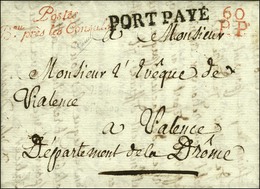 Postes
Bau près les Consuls
PORT PAYÉ
60
P.P
a Monsieur
Monsieur l'Evêque de
Valence
a Valence
Département de la Drôme